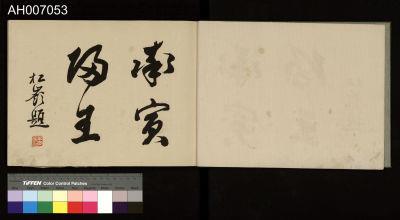 AH007053
率賓
歸王
松巖題
TIFFEN Color Control Patches